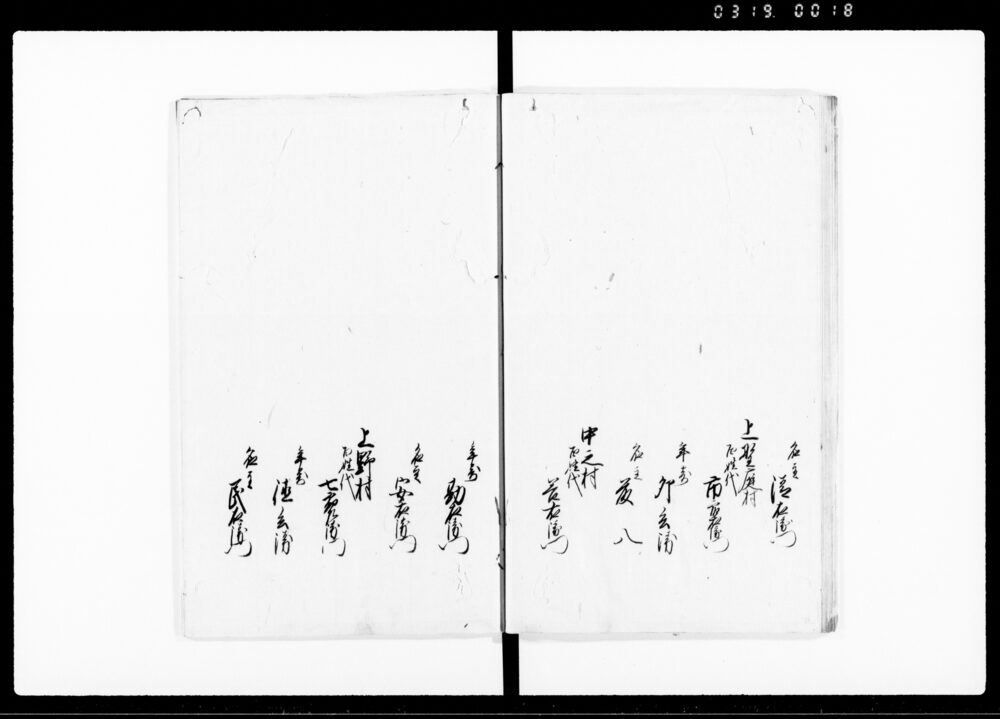 0319 0018
名主
右衛門
上
村
百姓代
市右衛門
年寄
卯兵衛
名主
八
中之村
百姓代
右衛門
年寄
勘右衛門
名主
安右衛門
上野村
百姓代
七右衛門
年寄
兵衛
名主
民右衛門